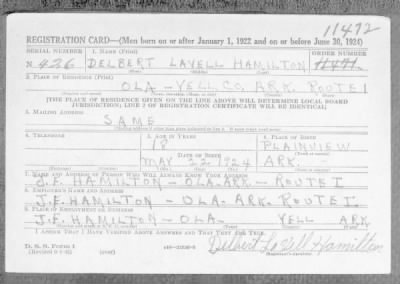 11472
REGISTRATION CARD—(Men born on or after January 1, 1922 and on or before June 30, 1924)
SERIAL NUMBER 1. NAME (Print) ORDER NUMBER
N 426 DELBERT LAVELL HAMILTON 11471
(First) (Middle) (Last)
2. PLACE OF RESIDENCE (Print)
OLA - YELL CO. ARK. ROUTE 1
[THE PLACE OF RESIDENCE GIVEN ON THE LINE ABOVE WILL DETERMINE LOCAL BOARD
JURISDICTION; LINE 2 OF REGISTRATION CERTIFICATE WILL BE IDENTICAL]
3. MAILING ADDRESS
SAME
4. TELEPHONE 5. AGE IN YEARS 6. PLACE OF BIRTH
18 PLAINVIEW
DATE OF BIRTH (Town or county)
MAY 22 1924 ARK.
7. NAME AND ADDRESS OF PERSON WHO WILL ALWAYS KNOW YOUR ADDRESS
J.F. HAMILTON - OLA - ARK - ROUTE 1
8. EMPLOYER'S NAME AND ADDRESS
J.F. HAMILTON - OLA. ARK. ROUTE 1.
9. PLACE OF EMPLOYMENT OR BUSINESS
J.F. HAMILTON - OLA. YELL ARK
I AFFIRM THAT I HAVE VERIFIED ABOVE ANSWERS AND THAT THEY ARE TRUE.
D. S. S. Form 1
Delbert Lavell Hamilton
(Registrant's signature)